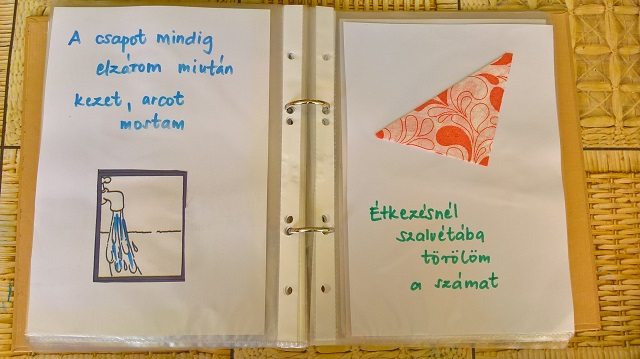 A csapot mindig
elzárom miután
kezet, arcot
mostam
Étkezésnél
szalvétába
törölöm
a számat